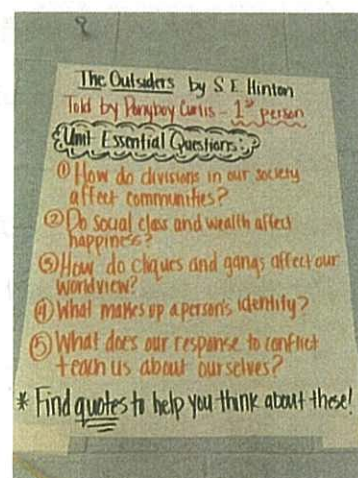 The Outsiders by S E Hinton
Told by Ponyboy Curtis - 1st person
Unit Essential Questions:
① How do divisions in our society
affect communities?
② Do social class and wealth affect
happiness?
③ How do cliques and gangs affect our
worldview?
④ What makes up a person's identity?
⑤ What does our response to conflict
teach us about ourselves?
* Find quotes to help you think about these!